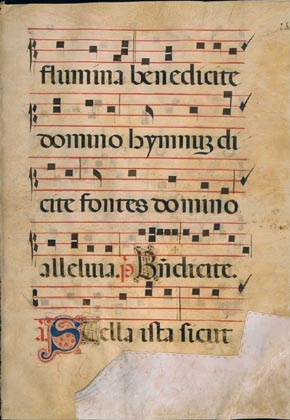 flumina benedicite
domino hymnuz di
cite fontes domino
alleluia. p̄ Bn̄dicite.
a Stella ista sicut